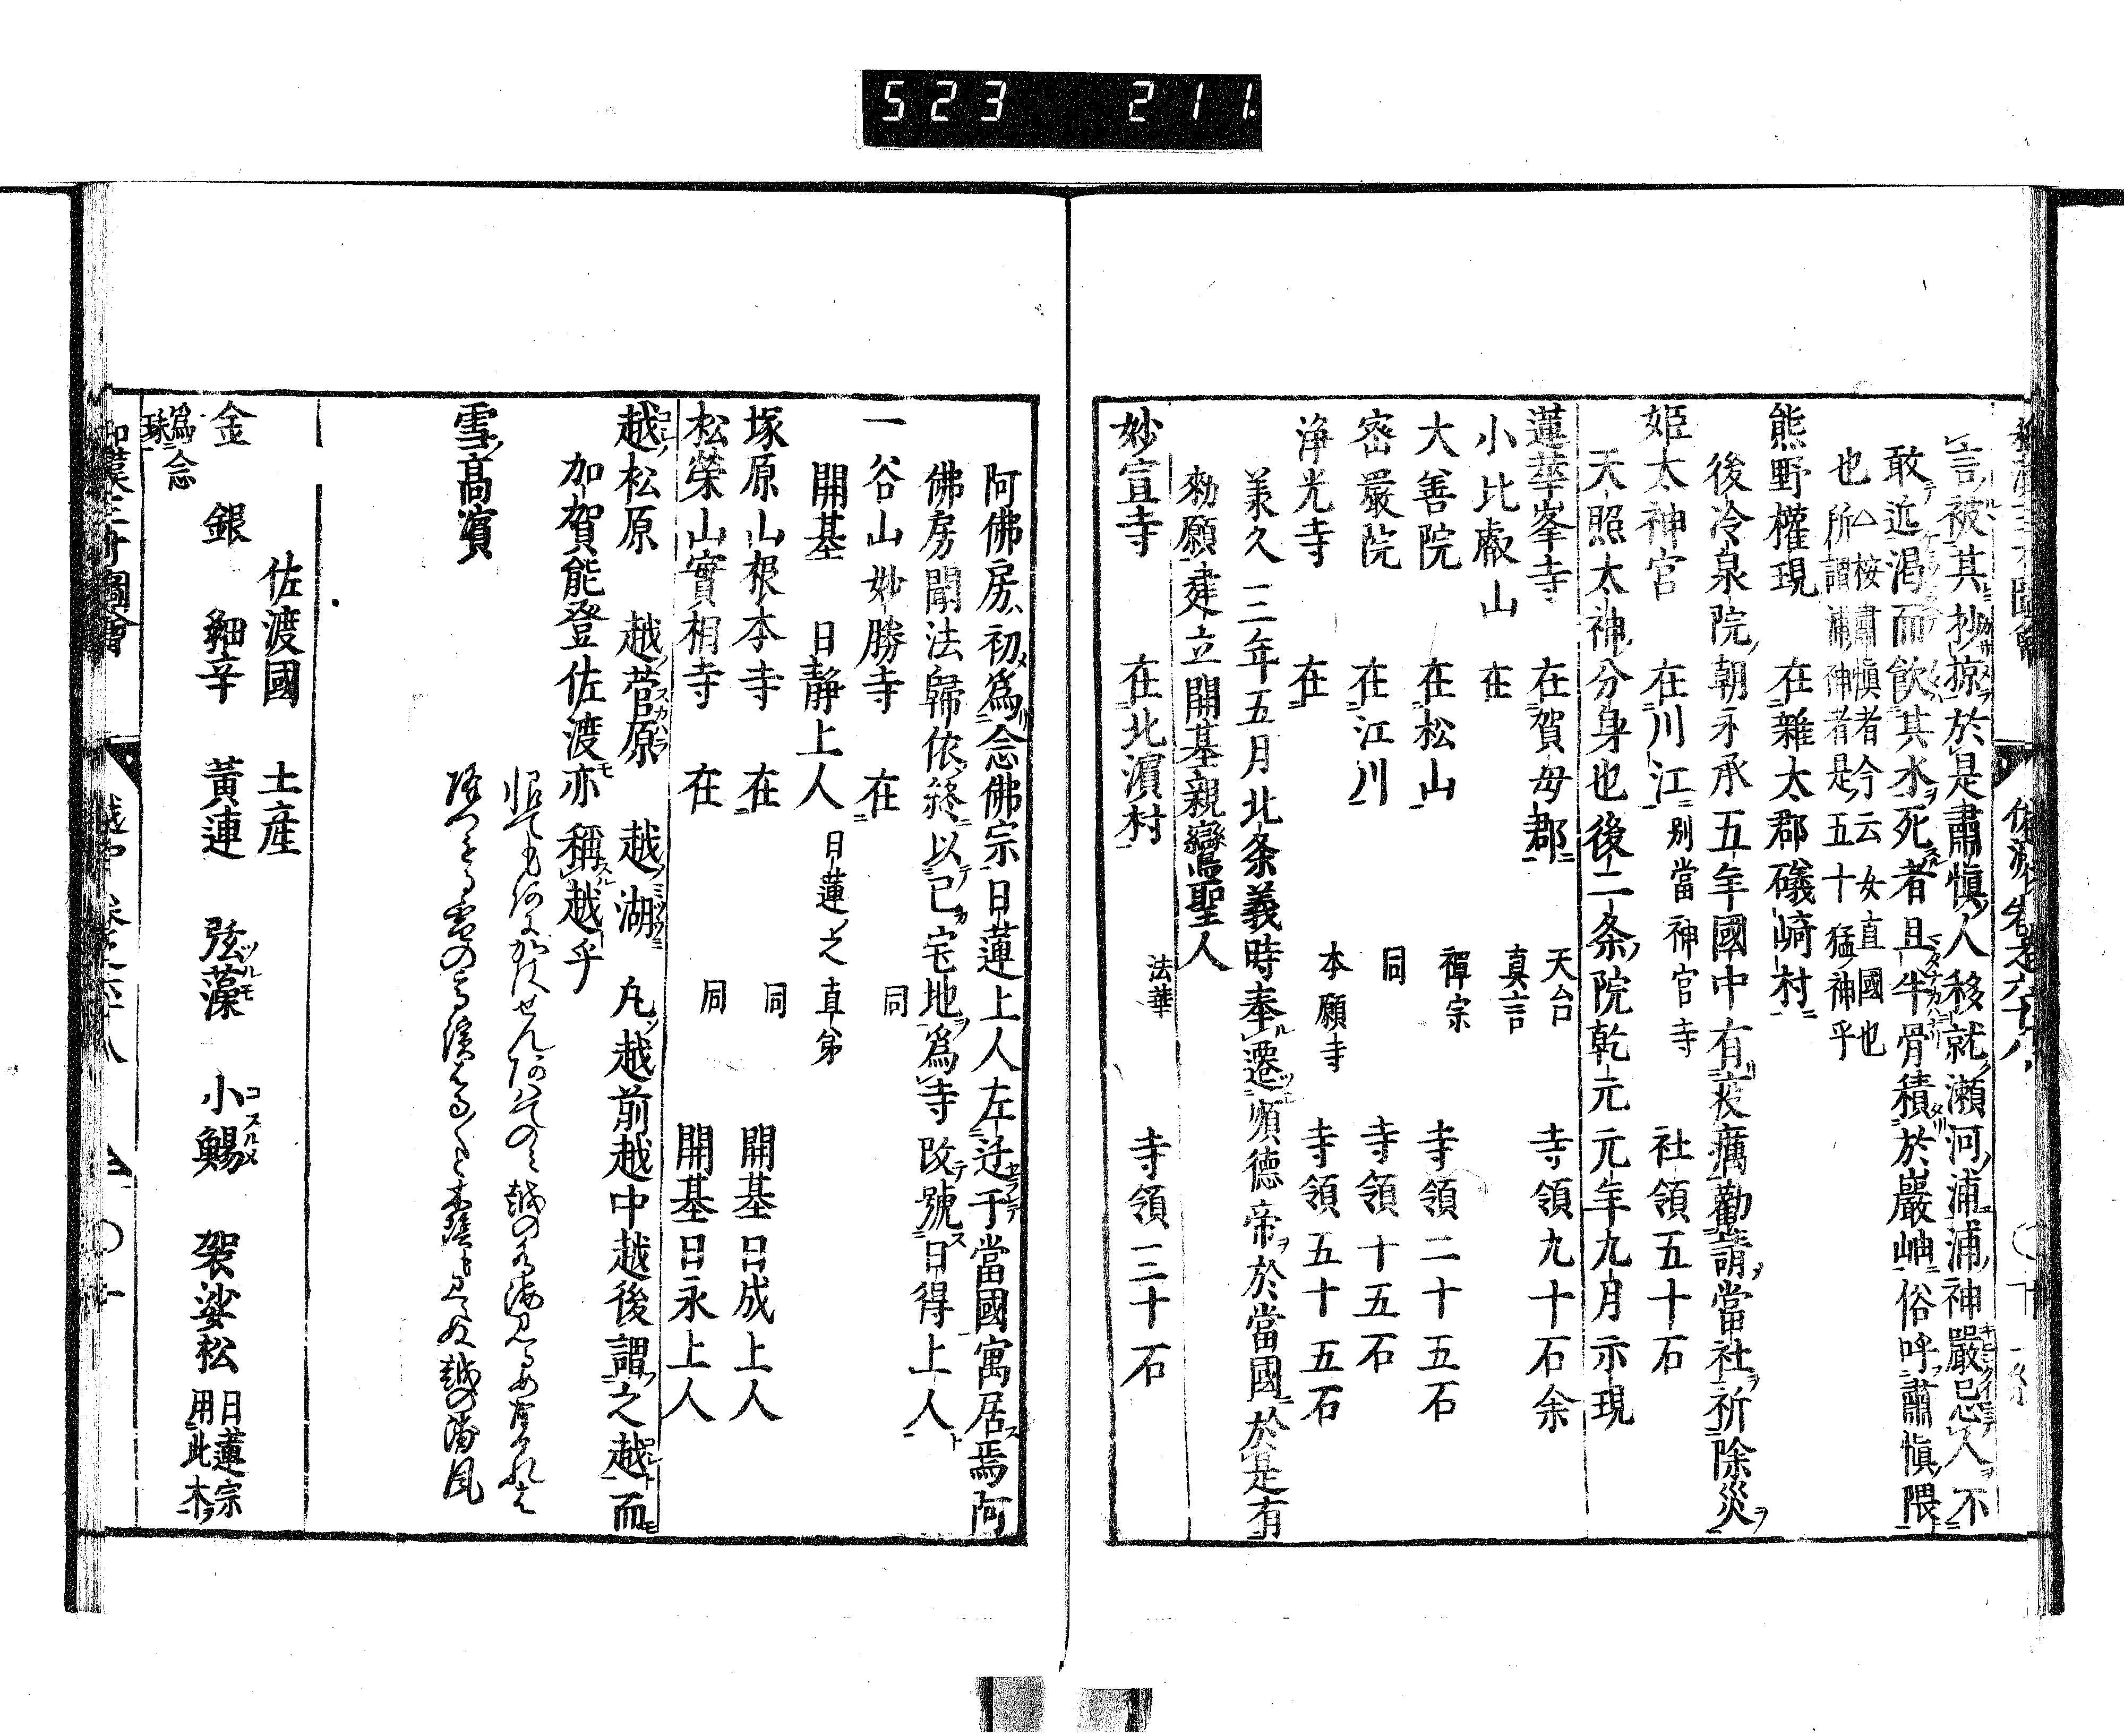 523 211.
言被其抄掠於是肅愼人移就瀨河浦浦神嚴忌人不
敢近渇而飲其水死者且半骨積於巖岫俗呼肅愼隈
也 △按肅愼者今云女直國也
所謂浦神者是五十猛神乎
熊野權現 在雜太郡礒崎村
後冷泉院朝永承五年國中有疫癘勸請當社祈除災
姫太神宮 在川江 別當神宮寺 社領五十石
天照太神分身也後二条院乾元元年九月示現
蓮華峯寺 在賀毎郡 天台 寺領九十石余
小比叡山 在 真言
大善院 在松山 禪宗 寺領二十五石
密嚴院 在江川 同 寺領十五石
淨光寺 在 本願寺 寺領五十五石
羕久三年五月北条義時奉遷順德帝於當國於是有
勅願建立開基親鸞聖人
妙宣寺 在北濵村 法華 寺領三十石
阿佛房初爲念佛宗日蓮上人左迁于當國寓居焉阿
佛房聞法歸依終以己宅地爲寺改號日得上人
一谷山妙勝寺 在 同
開基 日靜上人 日蓮之直弟
塚原山根本寺 在 同 開基日成上人
松榮山實相寺 在 同 開基日永上人
越松原 越菅原 越湖 凡越前越中越後謂之越而
加賀能登佐渡亦稱越乎
雪高濵
佐渡國 土産
金 銀 細辛 黃連 弦藻 小鯣 袈娑松 日蓮宗用此木
爲念珠